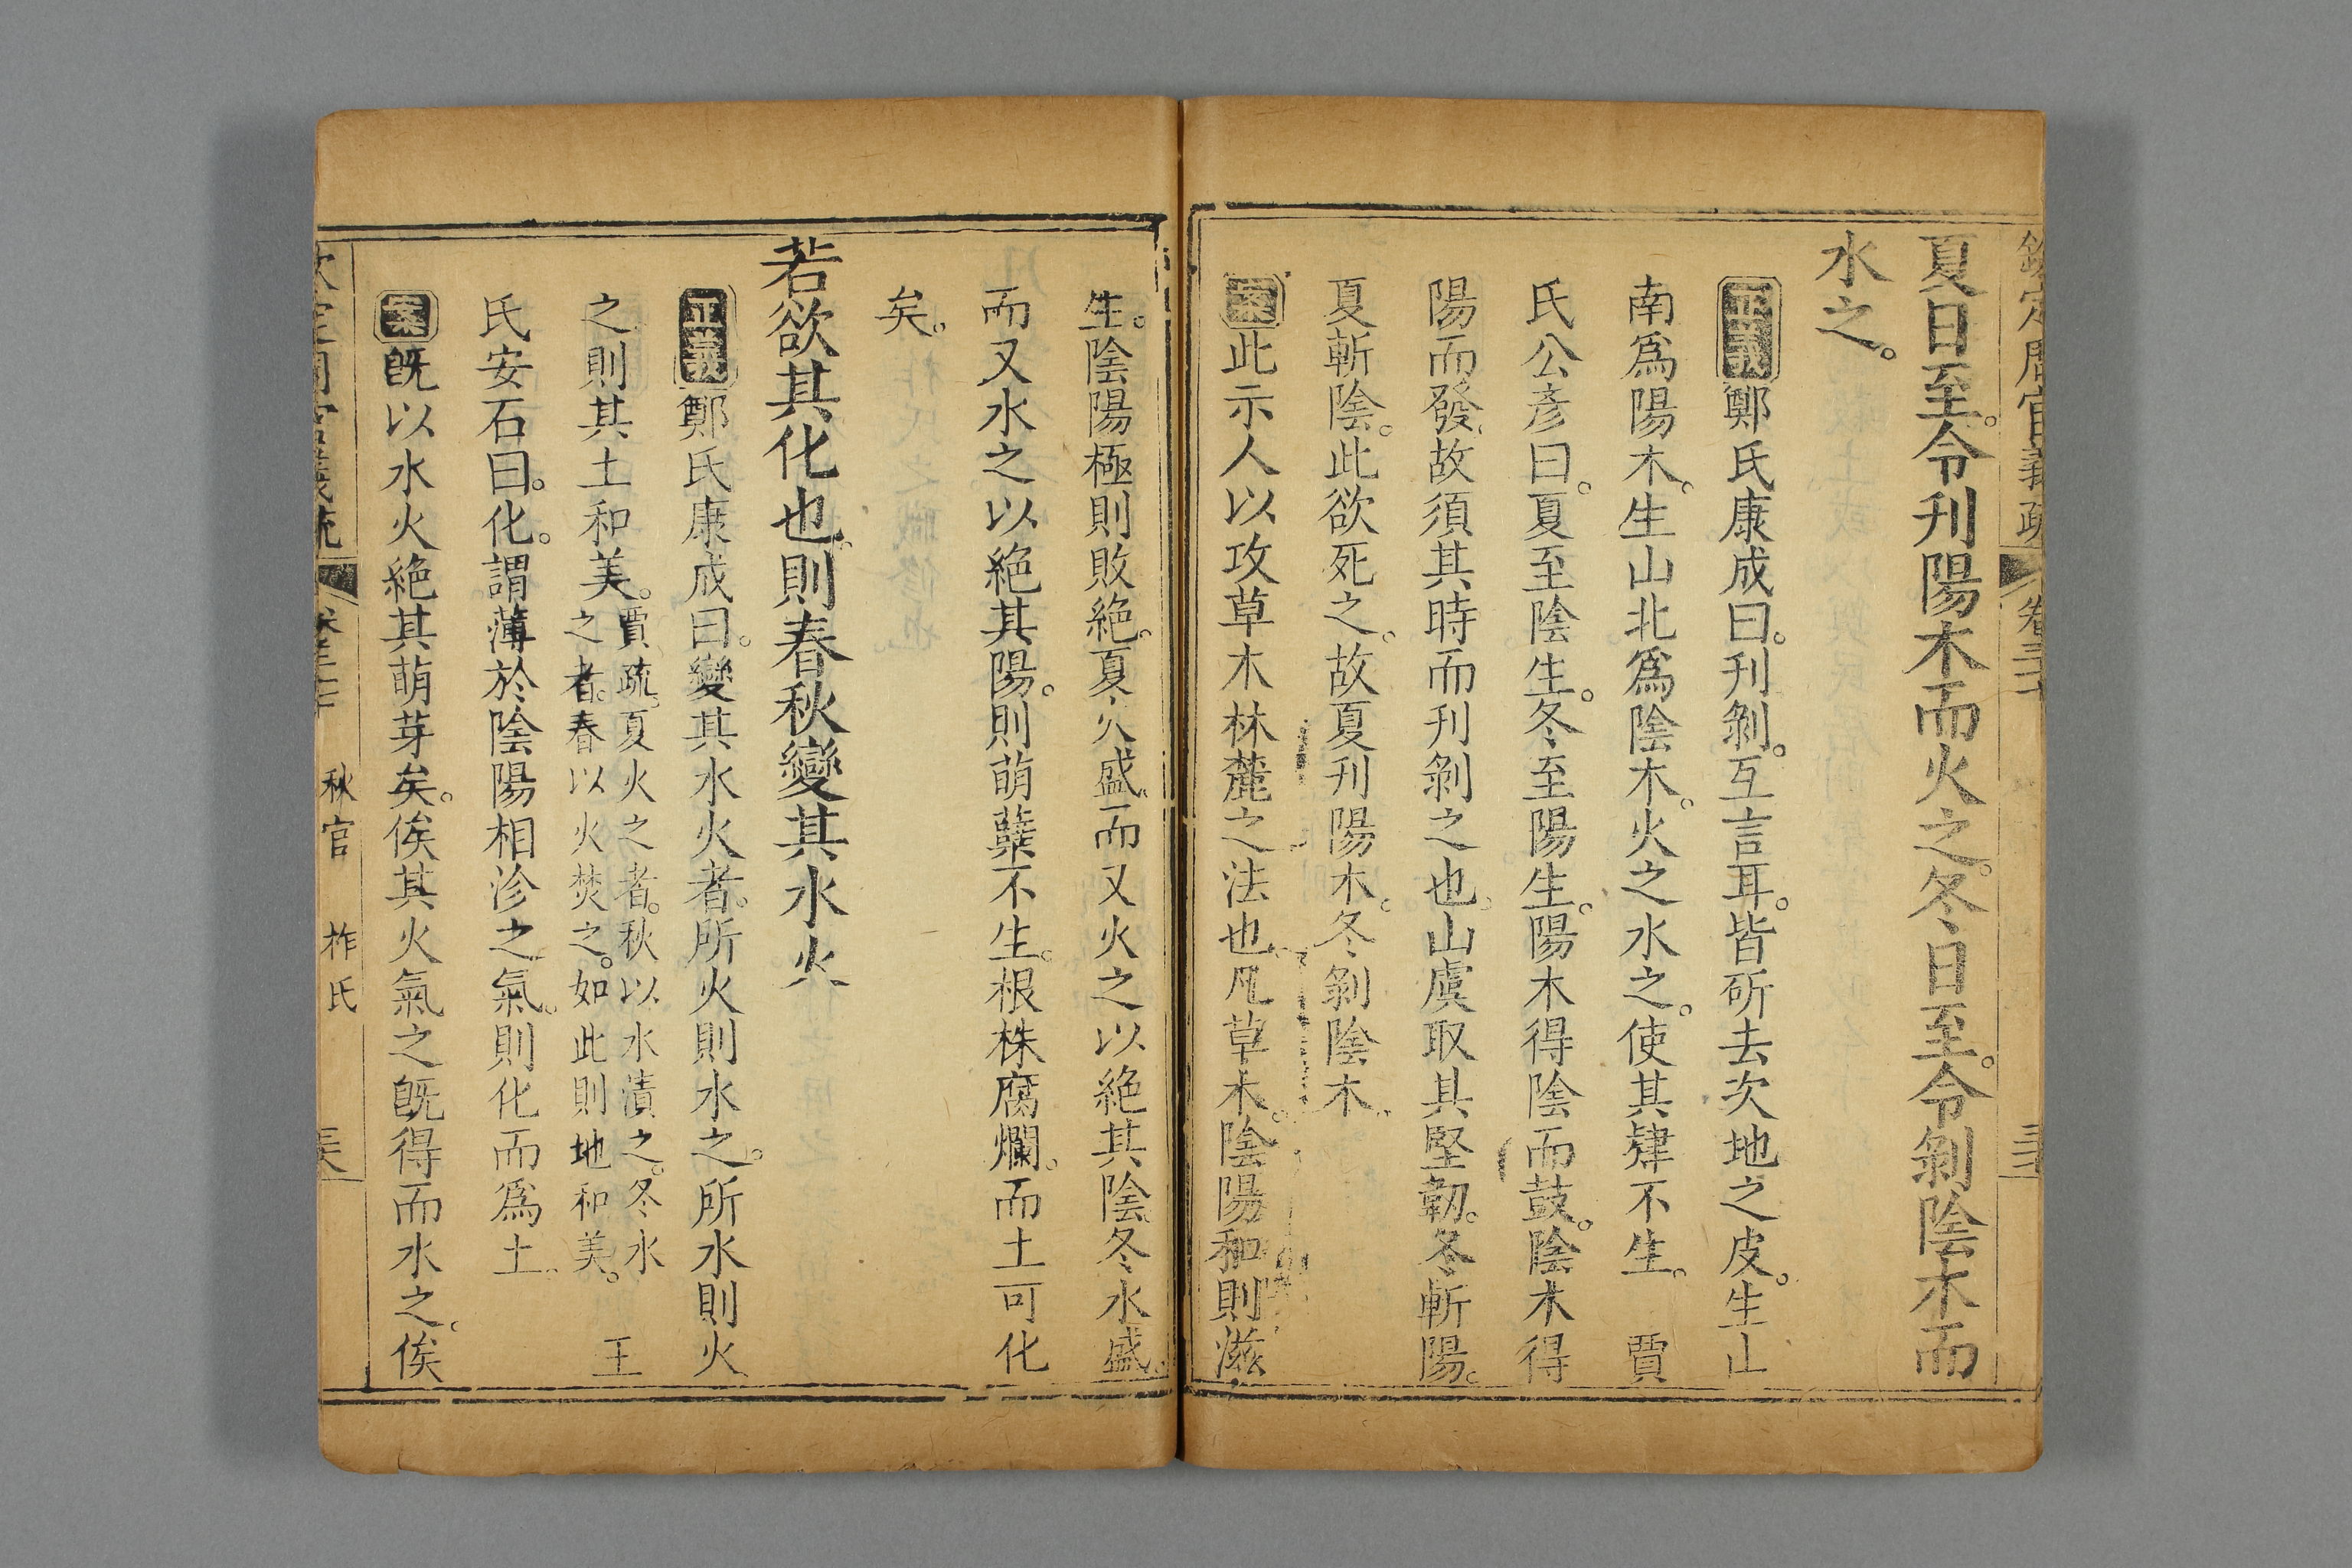 夏日至。令刋陽木而火之。冬日至。令剝陰木而
水之。
正義鄭氏康成曰。刋剝。互言耳。皆斫去次地之皮。生山
南爲陽木。生山北爲陰木。火之水之。使其肄不生。賈
氏公彥曰。夏至陰生。冬至陽生。陽木得陰而鼓。陰木得
陽而發。故須其時而刋剝之也。山虞取其堅韌。冬斬陽。
夏斬陰。此欲死之。故夏刋陽木。冬剝陰木。
案此示人以攻草木林麓之法也。凡草木。陰陽和則滋
生。陰陽極則敗絶。夏火盛。而又火之以絶其陰。冬水盛。
而又水之以絶其陽。則萌蘖不生。根株腐爛。而土可化
矣。
若欲其化也。則春秋變其水火
正義鄭氏康成曰。變其水火者。所火則水之。所水則火
之則其土和美。賈疏。夏火之者。秋以水漬之。冬水之者。春以火焚之。如此則地和美。王
氏安石曰。化。謂薄於陰陽相沴之氣。則化而爲土。
案旣以水火絶其萌芽矣。俟其火氣之旣得而水之。俟
秋官 柞氏